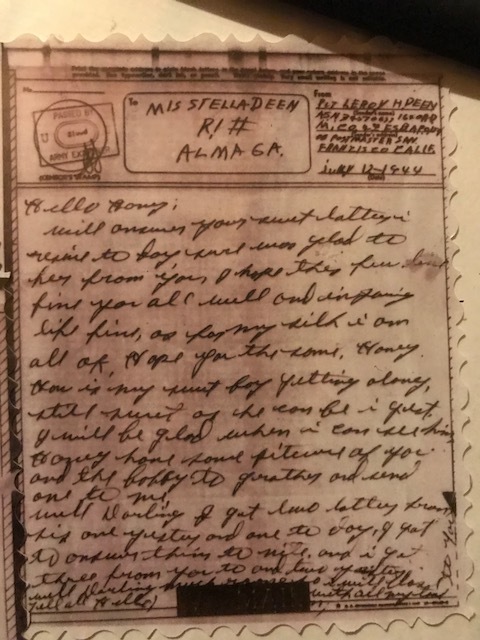 PASSED BY
ARMY EXAMINER
(CENSOR'S STAMP)
To
MIS STELLA DEEN
R1#
ALMA GA.
From
PvT LEROY H. DEEN
POSTMASTER SAN
FRANCISCO CALIF
July 12-1944
(Date)
Hello Honey;
will answer your sweet letter i
resive to day sure was glad to
her from you, I hope this few line
fine you all well and injoying
life fine, as for my silf i am
all of, Hope you the same, Honey.
How is my sweet boy getting along,
still sweet as he can be i guest,
I will be glad when i can see him
Honey have some pitcure of you
and the bobby to geather and send
one to me,
well Darling I got two letter from
sis one yestay and one to day, I got
to answer them to nite, and i got
three from you to one two
well Darling will close
tell all Hello with all my love